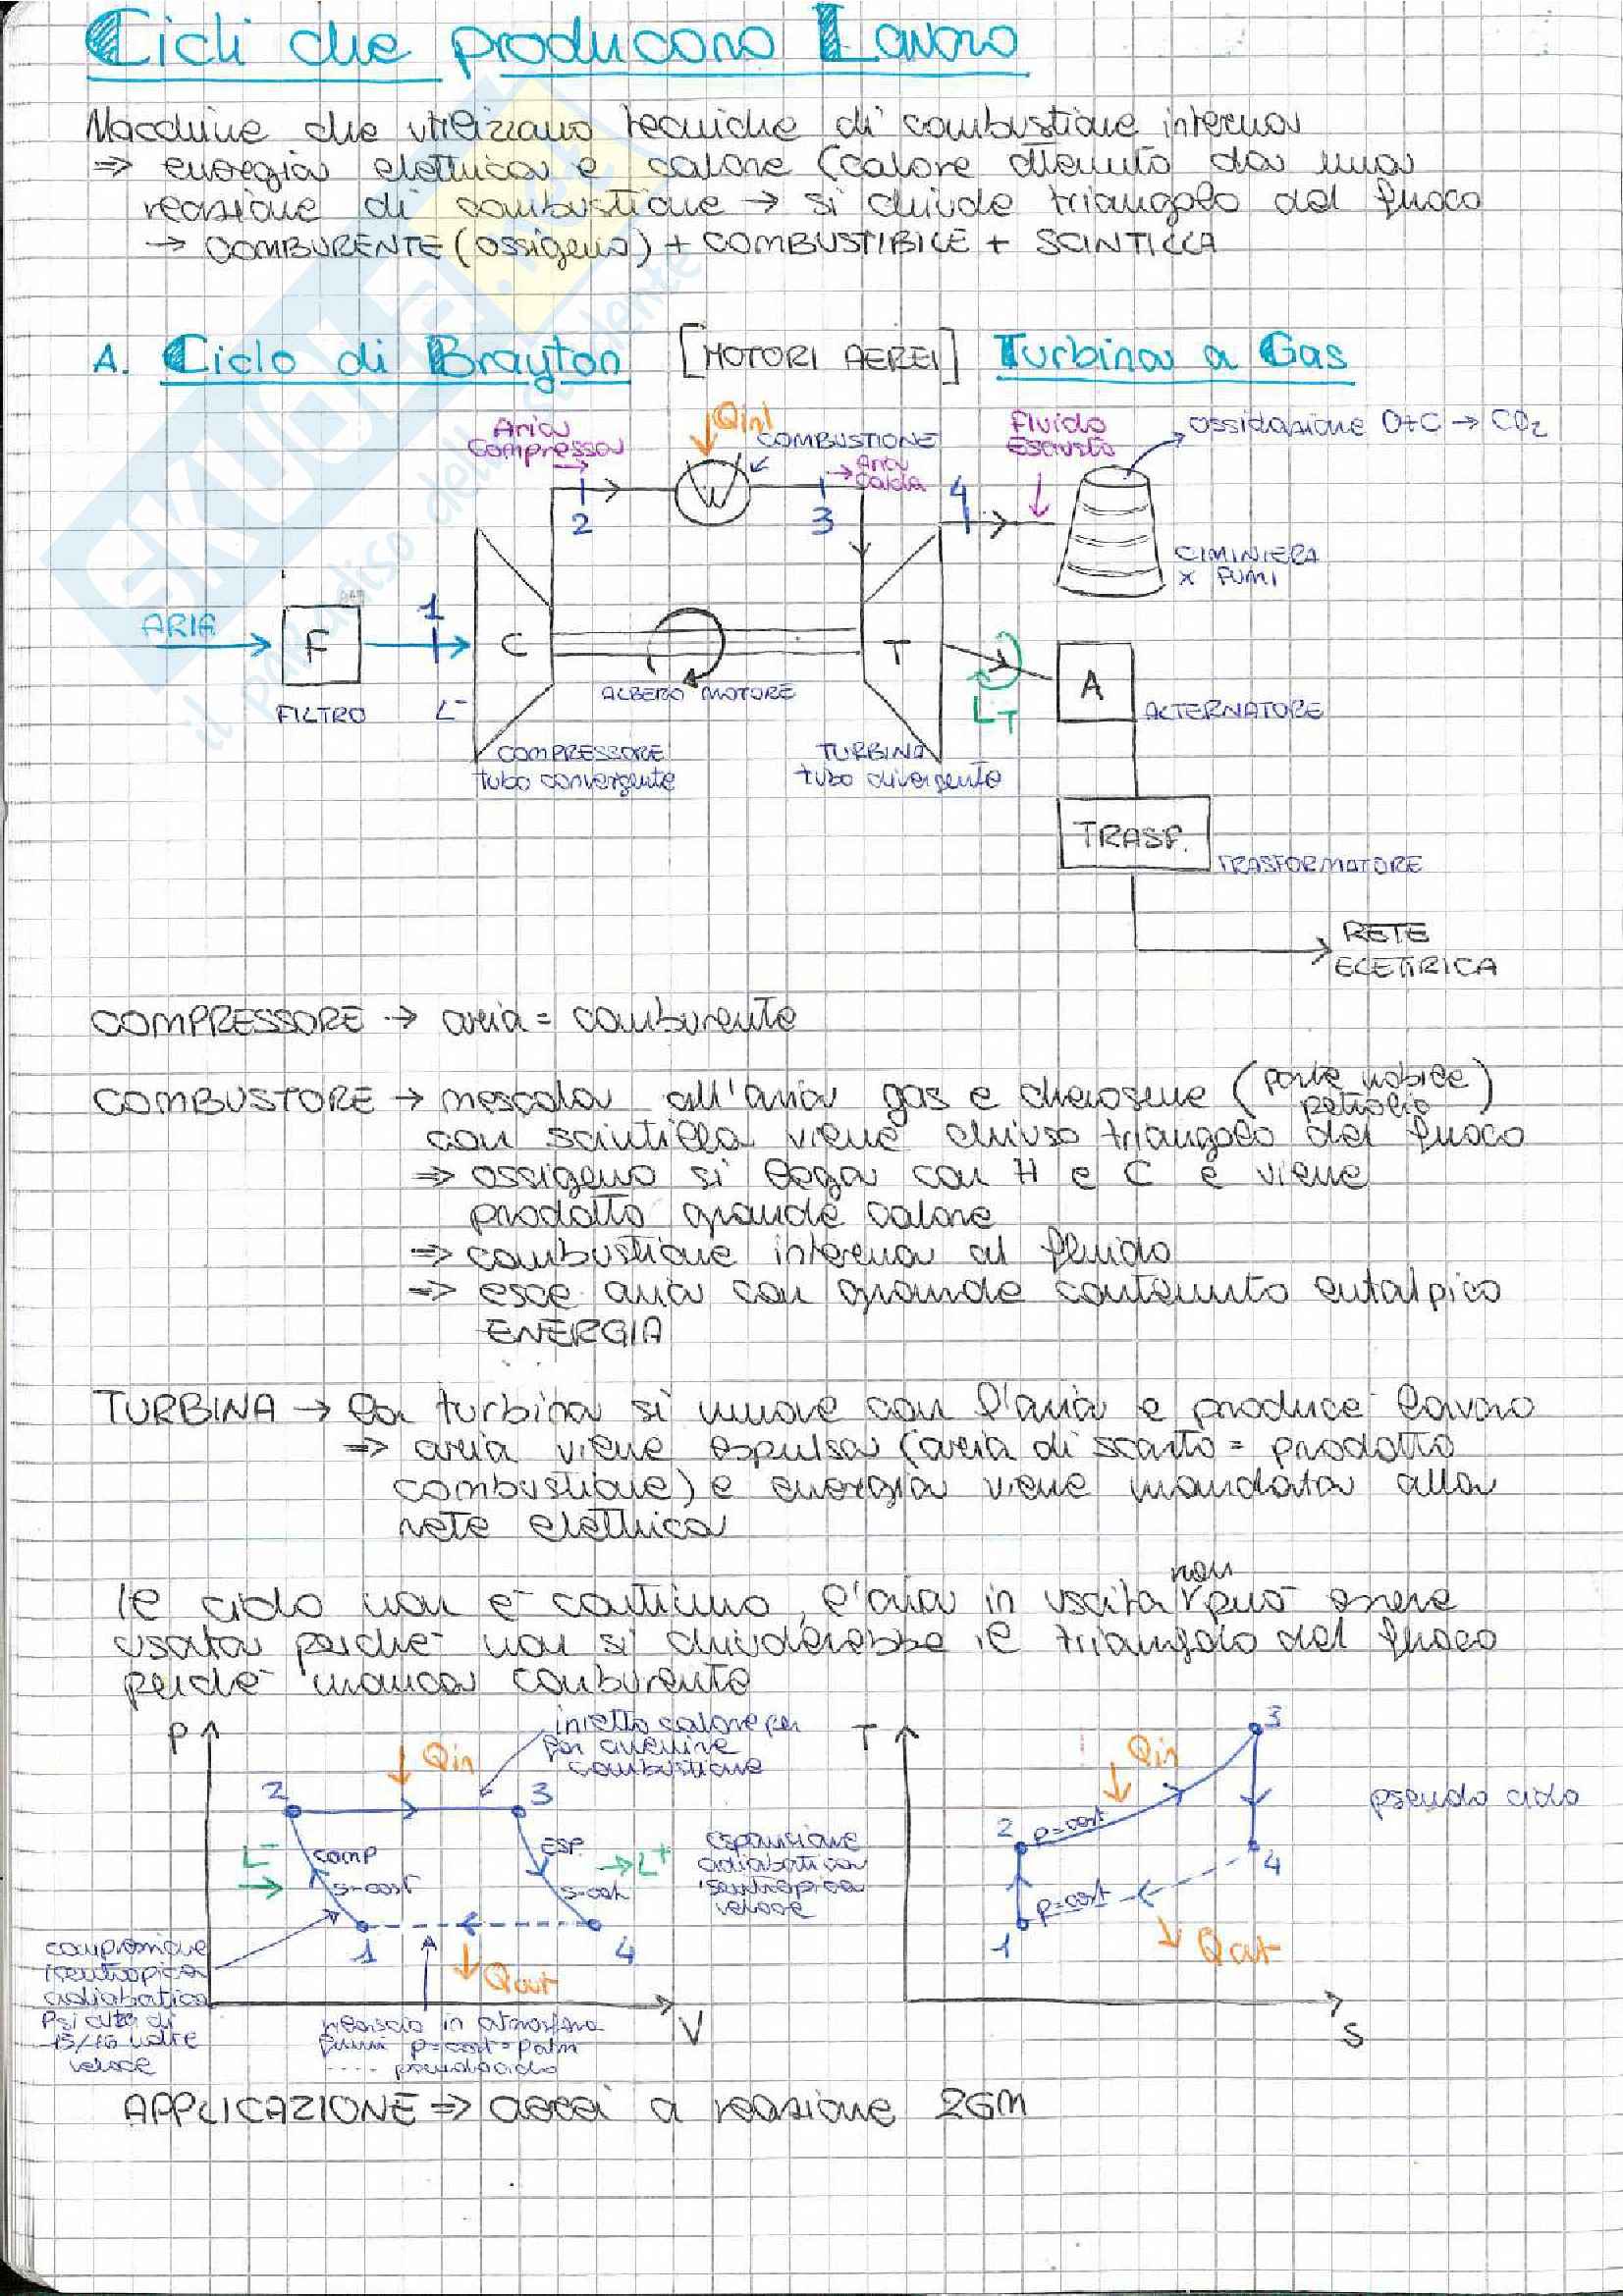 Cicli che producono Lavoro
Macchine che utilizzano tecniche di combustione interna
⇒ energia elettrica e calore (calore ottenuto da una
reazione di combustione → si chiude triangolo del fuoco
→ COMBURENTE (ossigeno) + COMBUSTIBILE + SCINTILLA
A. Ciclo di Brayton [MOTORI AEREI] Turbina a Gas
Aria
Compressa
Qin
COMBUSTIONE
Aria
Calda
Fluido
Esausto
ossidazione O+C → CO2
2
3
4
CIMINIERA
x FUMI
ARIA
F
FILTRO
1
L-
C
ALBERO MOTORE
T
LT
A
ALTERNATORE
COMPRESSORE
tubo convergente
TURBINA
tubo divergente
TRASF.
TRASFORMATORE
RETE
ELETTRICA
COMPRESSORE → aria = comburente
COMBUSTORE → mescola all'aria gas e cherosene (parte nobile petrolio)
con scintilla viene chiuso triangolo del fuoco
⇒ ossigeno si lega con H e C e viene
prodotto grande calore
⇒ combustione interna al fluido
⇒ esce aria con grande contenuto entalpico
ENERGIA
TURBINA → la turbina si muove con l'aria e produce lavoro
⇒ aria viene espulsa (aria di scarto = prodotto
combustione) e energia viene mandata alla
rete elettrica
Il ciclo non è continuo, l'aria in uscita non può essere
usata perché non si chiuderebbe il triangolo del fuoco
perché manca comburente
P
Qin
inietto calore per
far avvenire
combustione
2
3
COMP
s=cost
ESP.
s=cost
L-
L+
1
4
Qout
V
espansione
adiabatica
isentropica
veloce
compressione
isentropica
adiabatica
P si alza di
15/16 volte
veloce
rilascio in atmosfera
fumi p=cost=patm
---- pseudociclo
T
Qin
3
pseudo ciclo
2
p=cost
4
p=cost
1
Qout
S
APPLICAZIONE ⇒ aerei a reazione 2GM
SKUOLA.net
il paradiso dello studente